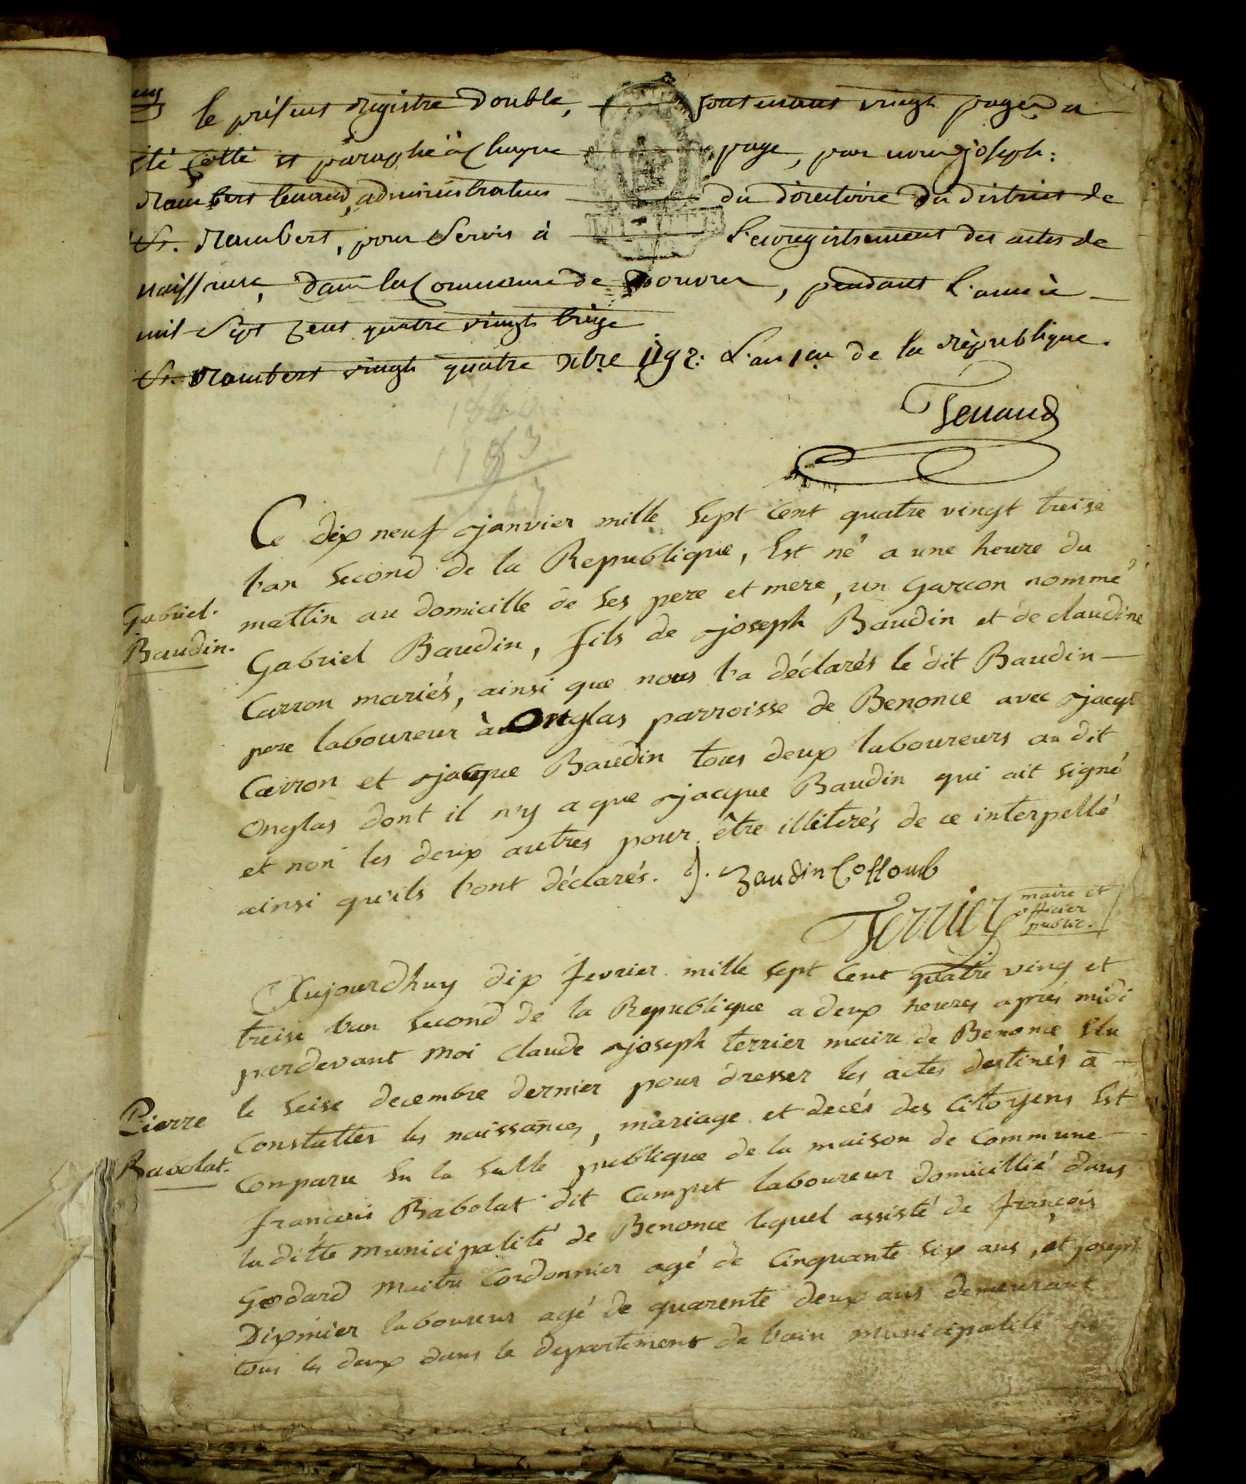 le présent registre double, contenant vingt pages a
été cotté et paraphé à chaque page, par nous joseph
Rambert tenand, administrateur du directoire du district de
St. Rambert, pour servir à l'enregistrement des actes de
naissance, dans la Commune de, pendant l'année
mil sept cent quatre vingt treize
St. Rambert vingt quatre xbre 1792: L'an 1er de la république.
Tenand
Ce dix neuf janvier mille sept cent quatre vingt treise
l'an second de la Republique, Est né a une heure du
mattin au domicille de ses pere et mere, un Garcon nommé
Gabriel.
Baudin.
Gabriel Baudin, fils de joseph Baudin et de claudine
Carron mariés, ainsi que nous l'a déclarés le dit Baudin
pere laboureur à Onglas parroisse de Benonce avec
Carron et jacque Baudin tous deux laboureurs au dit
Onglas dont il n'y a que jacque Baudin qui ait signé
et non les deux autres pour être illiterés de ce interpellé
ainsi qu'ils l'ont déclarés. J. Baudin Collomb
Terrier maire et
officier
public.
Aujourdhuy dix fevrier mille sept cent quatre ving et
treise l'an second de la Republique a deux heures après midi
pardevant moi claude joseph terrier maire de Benonce Elu
le seise decembre dernier pour dresser les actes destinés à
Pierre
Babolat.
Constatter les naissances, mariage et decés des Citoyens Est
Comparu En la salle publique de la maison de Commune
francois Babolat dit Campet laboureur domicillié dans
la ditte municipalité de Benonce lequel assisté de françois
Godard maitre Cordonnier agé de Cinquante six ans, et joseph
Dixmier laboureur agé de quarente deux ans demeurant
tous les deux dans le departement de l'ain municipalité de